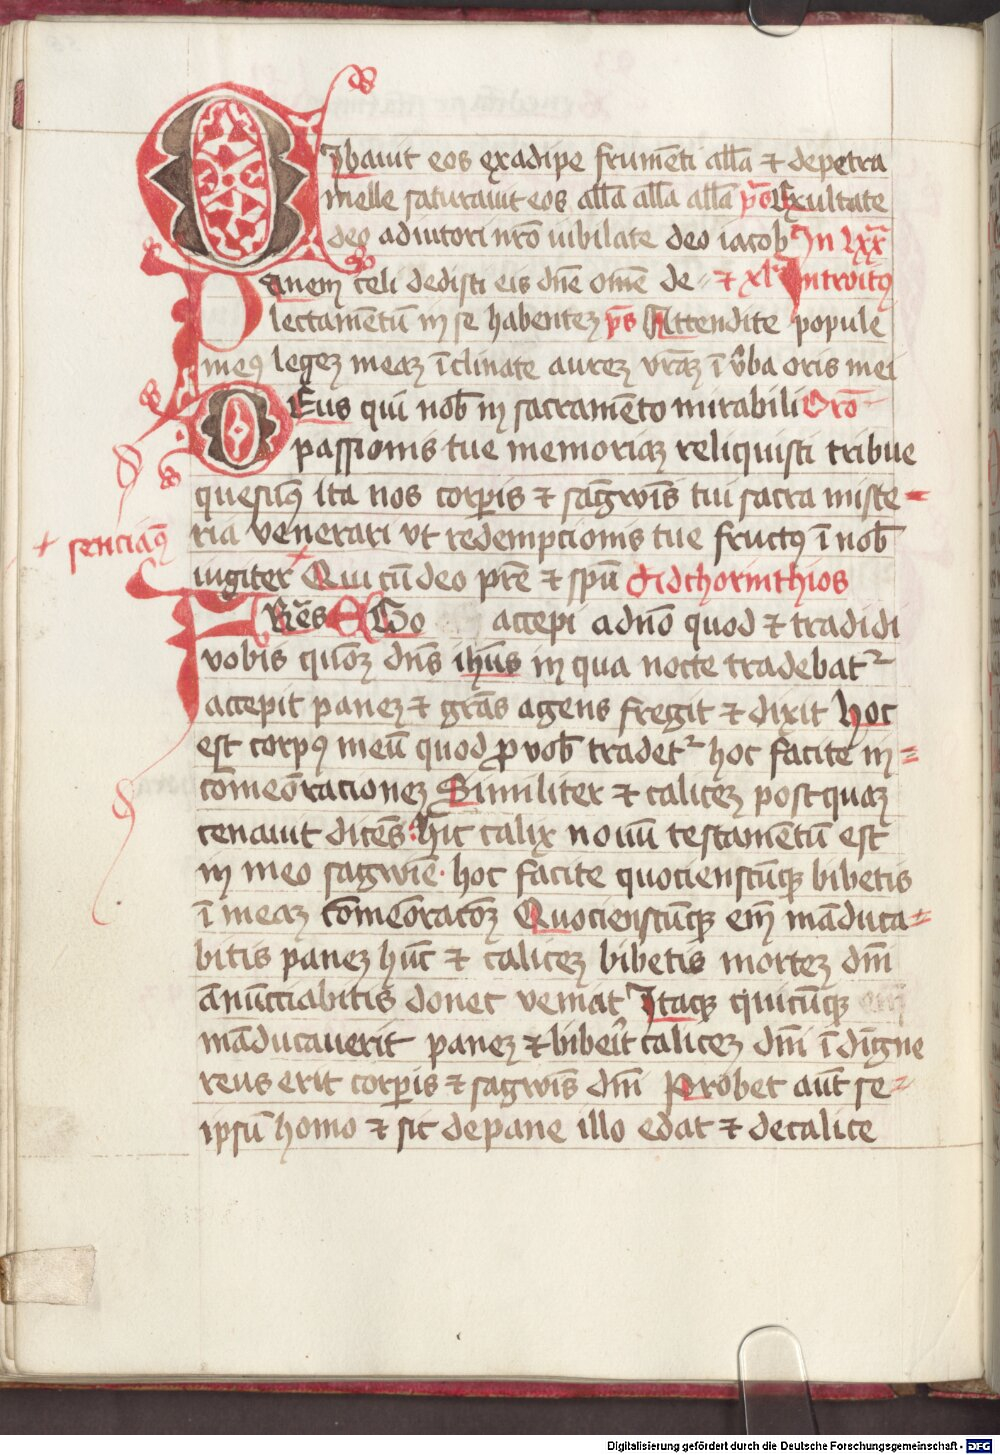 Cibauit eos ex adipe frumēti all̄a ⁊ de petra
melle saturauit eos all̄a all̄a all̄a p̄s Exultate
deo adiutori nr̄o iubilate deo iacob In lxx̄
Panem celi dedisti eis dn̄e om̄e de⸗ ⁊ xlᵃ Introitꝰ
lectamētū in se habentez p̄s Attendite popule
meꝰ legez meaz īclinate aurez vr̄az ī v̄ba oris mei
Deus qui nob̄ in sacramēto mirabili Orō
passionis tue memoriaz reliquisti tribue
quesumꝰ ita nos corꝑis ⁊ sāgwīs tui sacra miste⸗
ria venerari vt redempcionis tue fructū ī nob̄
+ senciamꝰ
iugiter + Qui cū deo pr̄e ⁊ sp̄u Ad chorinthios
Fr̄es Ego accepi a dn̄o quod ⁊ tradidi
vobis qm̄ dn̄s ihūs in qua nocte tradebat᷑
accepit panez ⁊ gr̄as agens fregit ⁊ dixit hoc
est corpꝰ meū quod ꝓ vob̄ tradet᷑ hoc facite in⸗
cōmeōracionez Similiter ⁊ calicez postquaz
cenauit dicēs Hic calix nouū testamētū est
in meo sagwīe hoc facite quocienscūqꝫ bibetis
ī meaz cōmeōracōez Quocienscūqꝫ em̄ māduca⸗
bitis panez hūc ⁊ calicez bibetis mortez dn̄i
anūcciabitis donec veniat Itaqꝫ quicūqꝫ
māducauerit panez ⁊ biberit calicez dn̄i īdigne
reus erit corꝑis ⁊ sagwīs dn̄i Probet aūt se⸗
ipsū homo ⁊ sic de pane illo edat ⁊ de calice
Digitalisierung gefördert durch die Deutsche Forschungsgemeinschaft - DFG